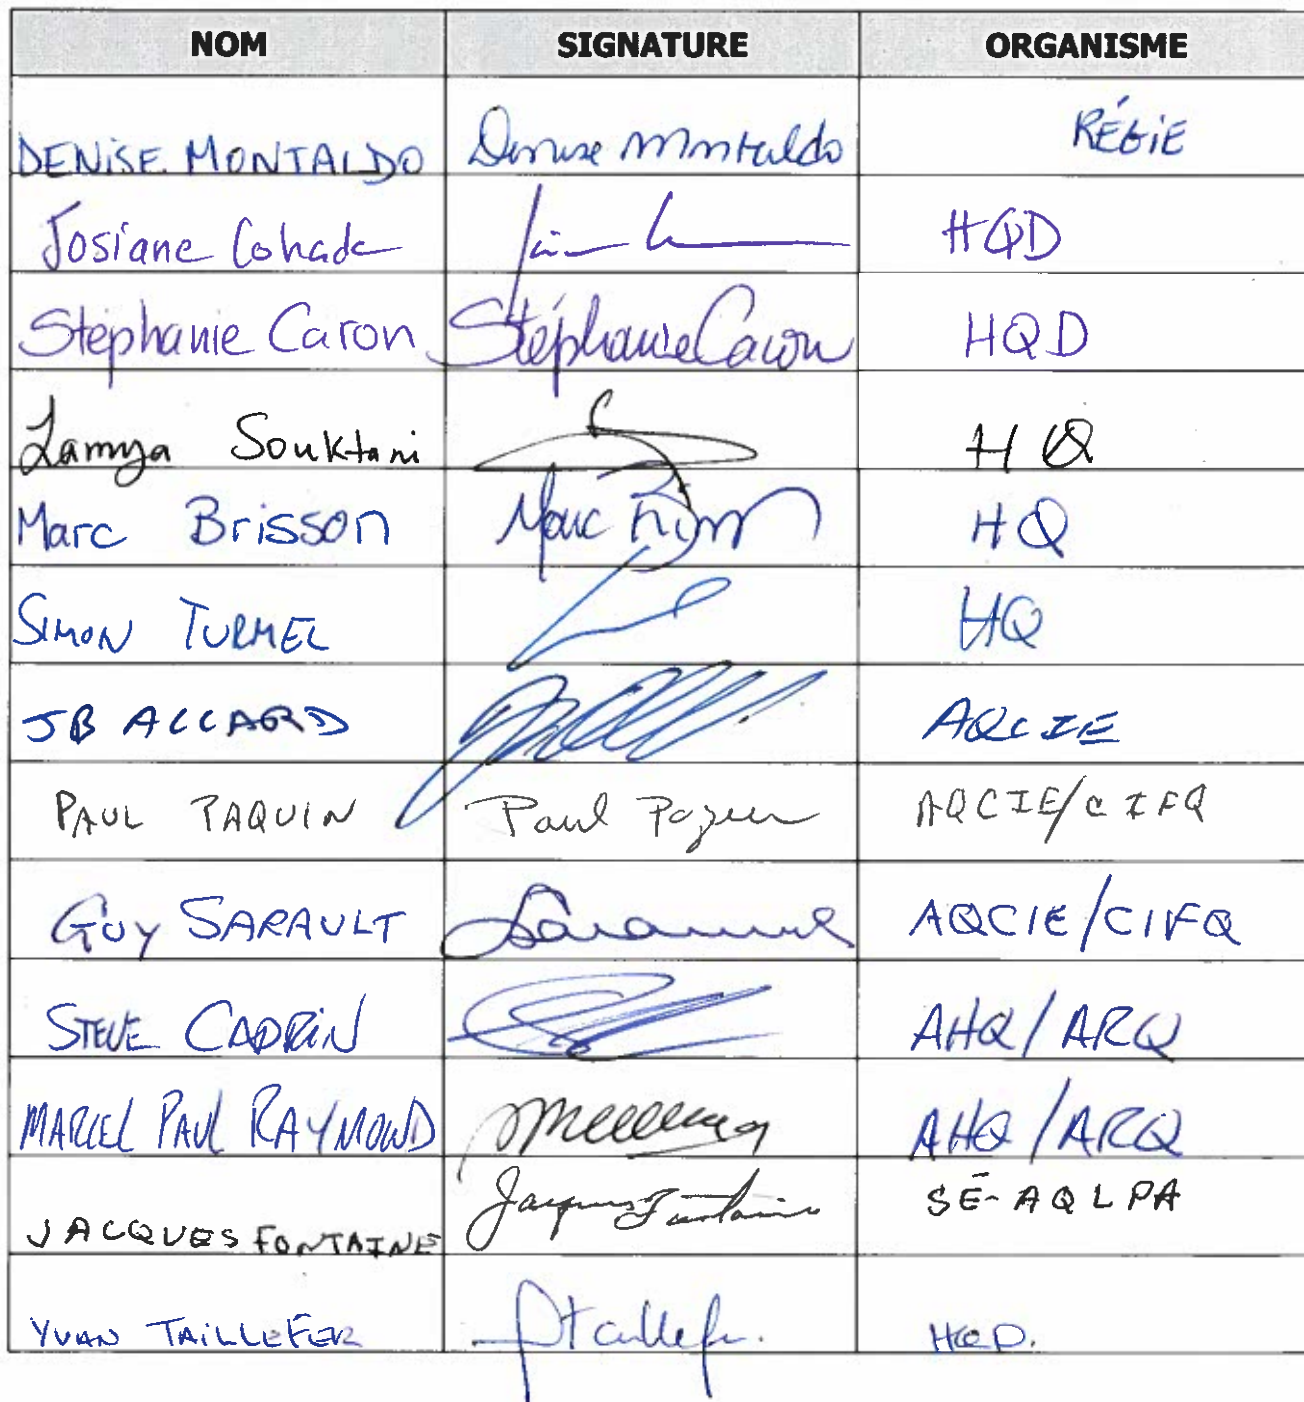 NOM SIGNATURE ORGANISME
DENISE MONTALDO Denise Montaldo RÉGIE
Josiane Cohade HQD
Stéphanie Caron Stéphanie Caron HQD
Lamya Souktani HQ
Marc Brisson Marc HQ
SIMON TURMEL HQ
JB ALLARD AQCIE
PAUL PAQUIN Paul Paquin AQCIE/CIFQ
GUY SARAULT AQCIE/CIFQ
STEVE CADRIN AHQ/ARQ
MARCEL PAUL RAYMOND AHQ/ARQ
JACQUES FONTAINE Jacques Fontaine SÉ-AQLPA
YVAN TAILLEFER HQD.